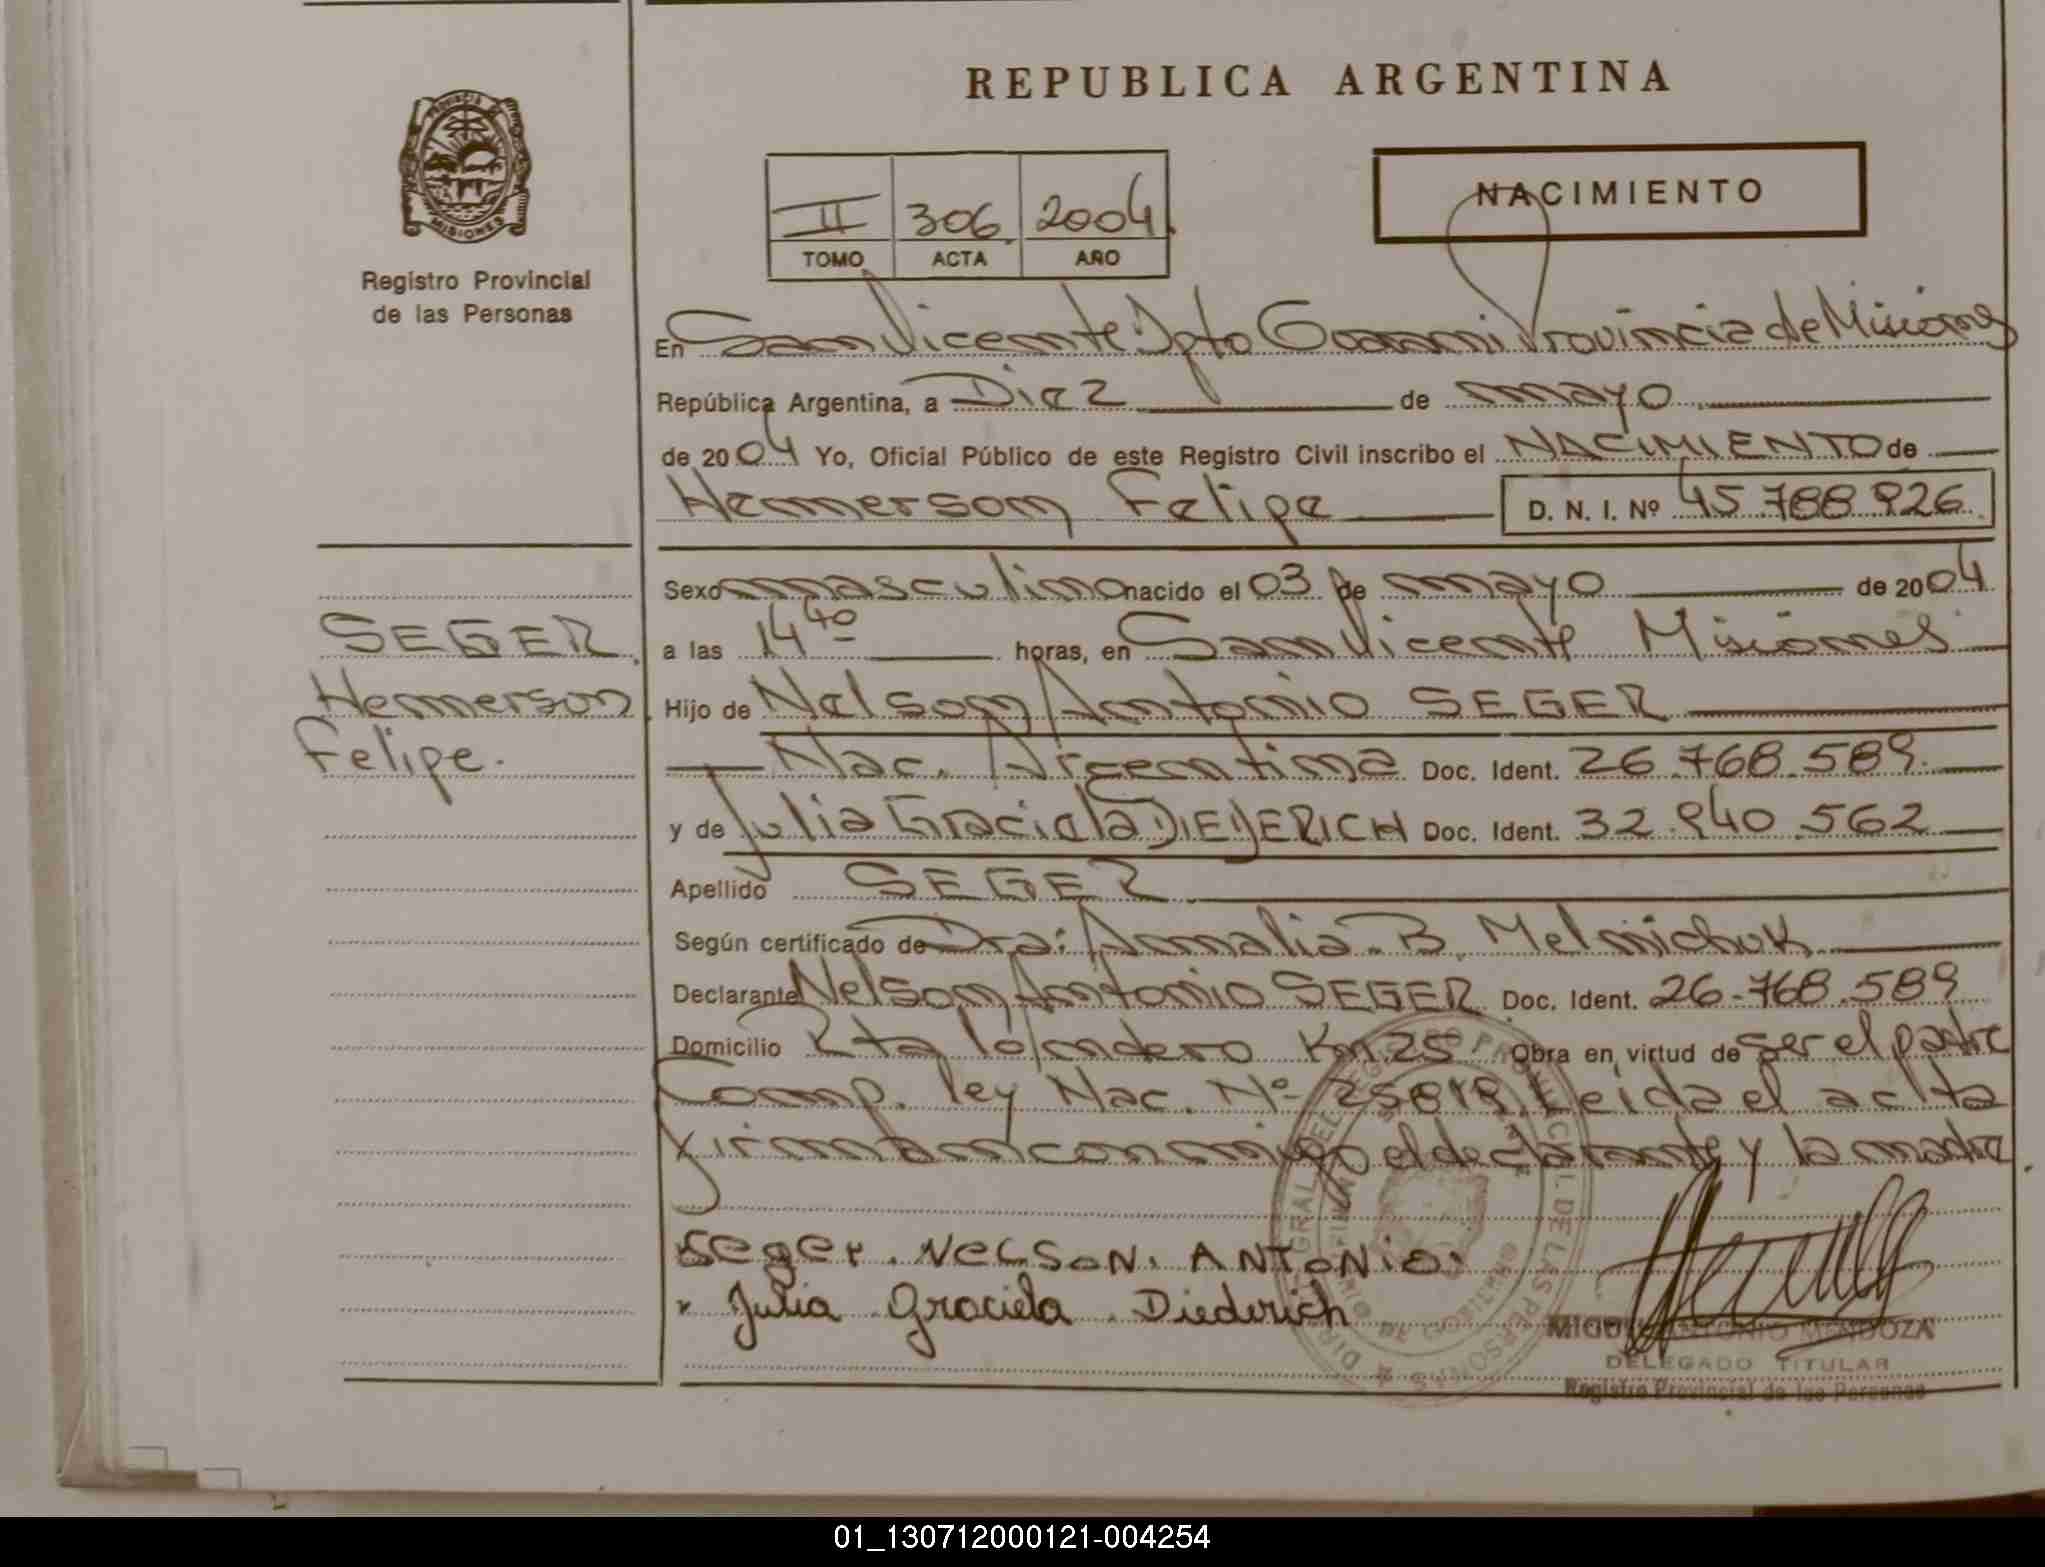 REPUBLICA ARGENTINA
PROVINCIA DE
MISIONES
Registro Provincial
de las Personas
NACIMIENTO
II 306 2004
TOMO ACTA AÑO
En San Vicente Dpto Guarani Provincia de Misiones
República Argentina, a Diez de mayo
de 2004 Yo, Oficial Público de este Registro Civil inscribo el NACIMIENTO de
Hemerson Felipe D. N. I. Nº 45.788.926
Sexo masculino nacido el 03 de mayo de 2004
SEGER
a las 14 40 horas, en San Vicente Misiones
Hemerson
Hijo de Nelson Antonio SEGER
Felipe.
Nac. Argentina Doc. Ident. 26.768.589
y de Julia Graciela DIEDERICH Doc. Ident. 32.940.562
Apellido SEGER
Según certificado de Dra: Annalia B. Melnichuk
Declarante Nelson Antonio SEGER Doc. Ident. 26.768.589
Domicilio Rta Km 25 Obra en virtud de ser el padre
Comp. ley Nac. Nº 25818. Leida el acta
firman conmigo el declarante y la madre.
Seger. NELSON. ANTONIO.
Julia Graciela Diederich
MIGUEL ANTONIO MENDOZA
DELEGADO TITULAR
Registro Provincial de las Personas
01_130712000121-004254